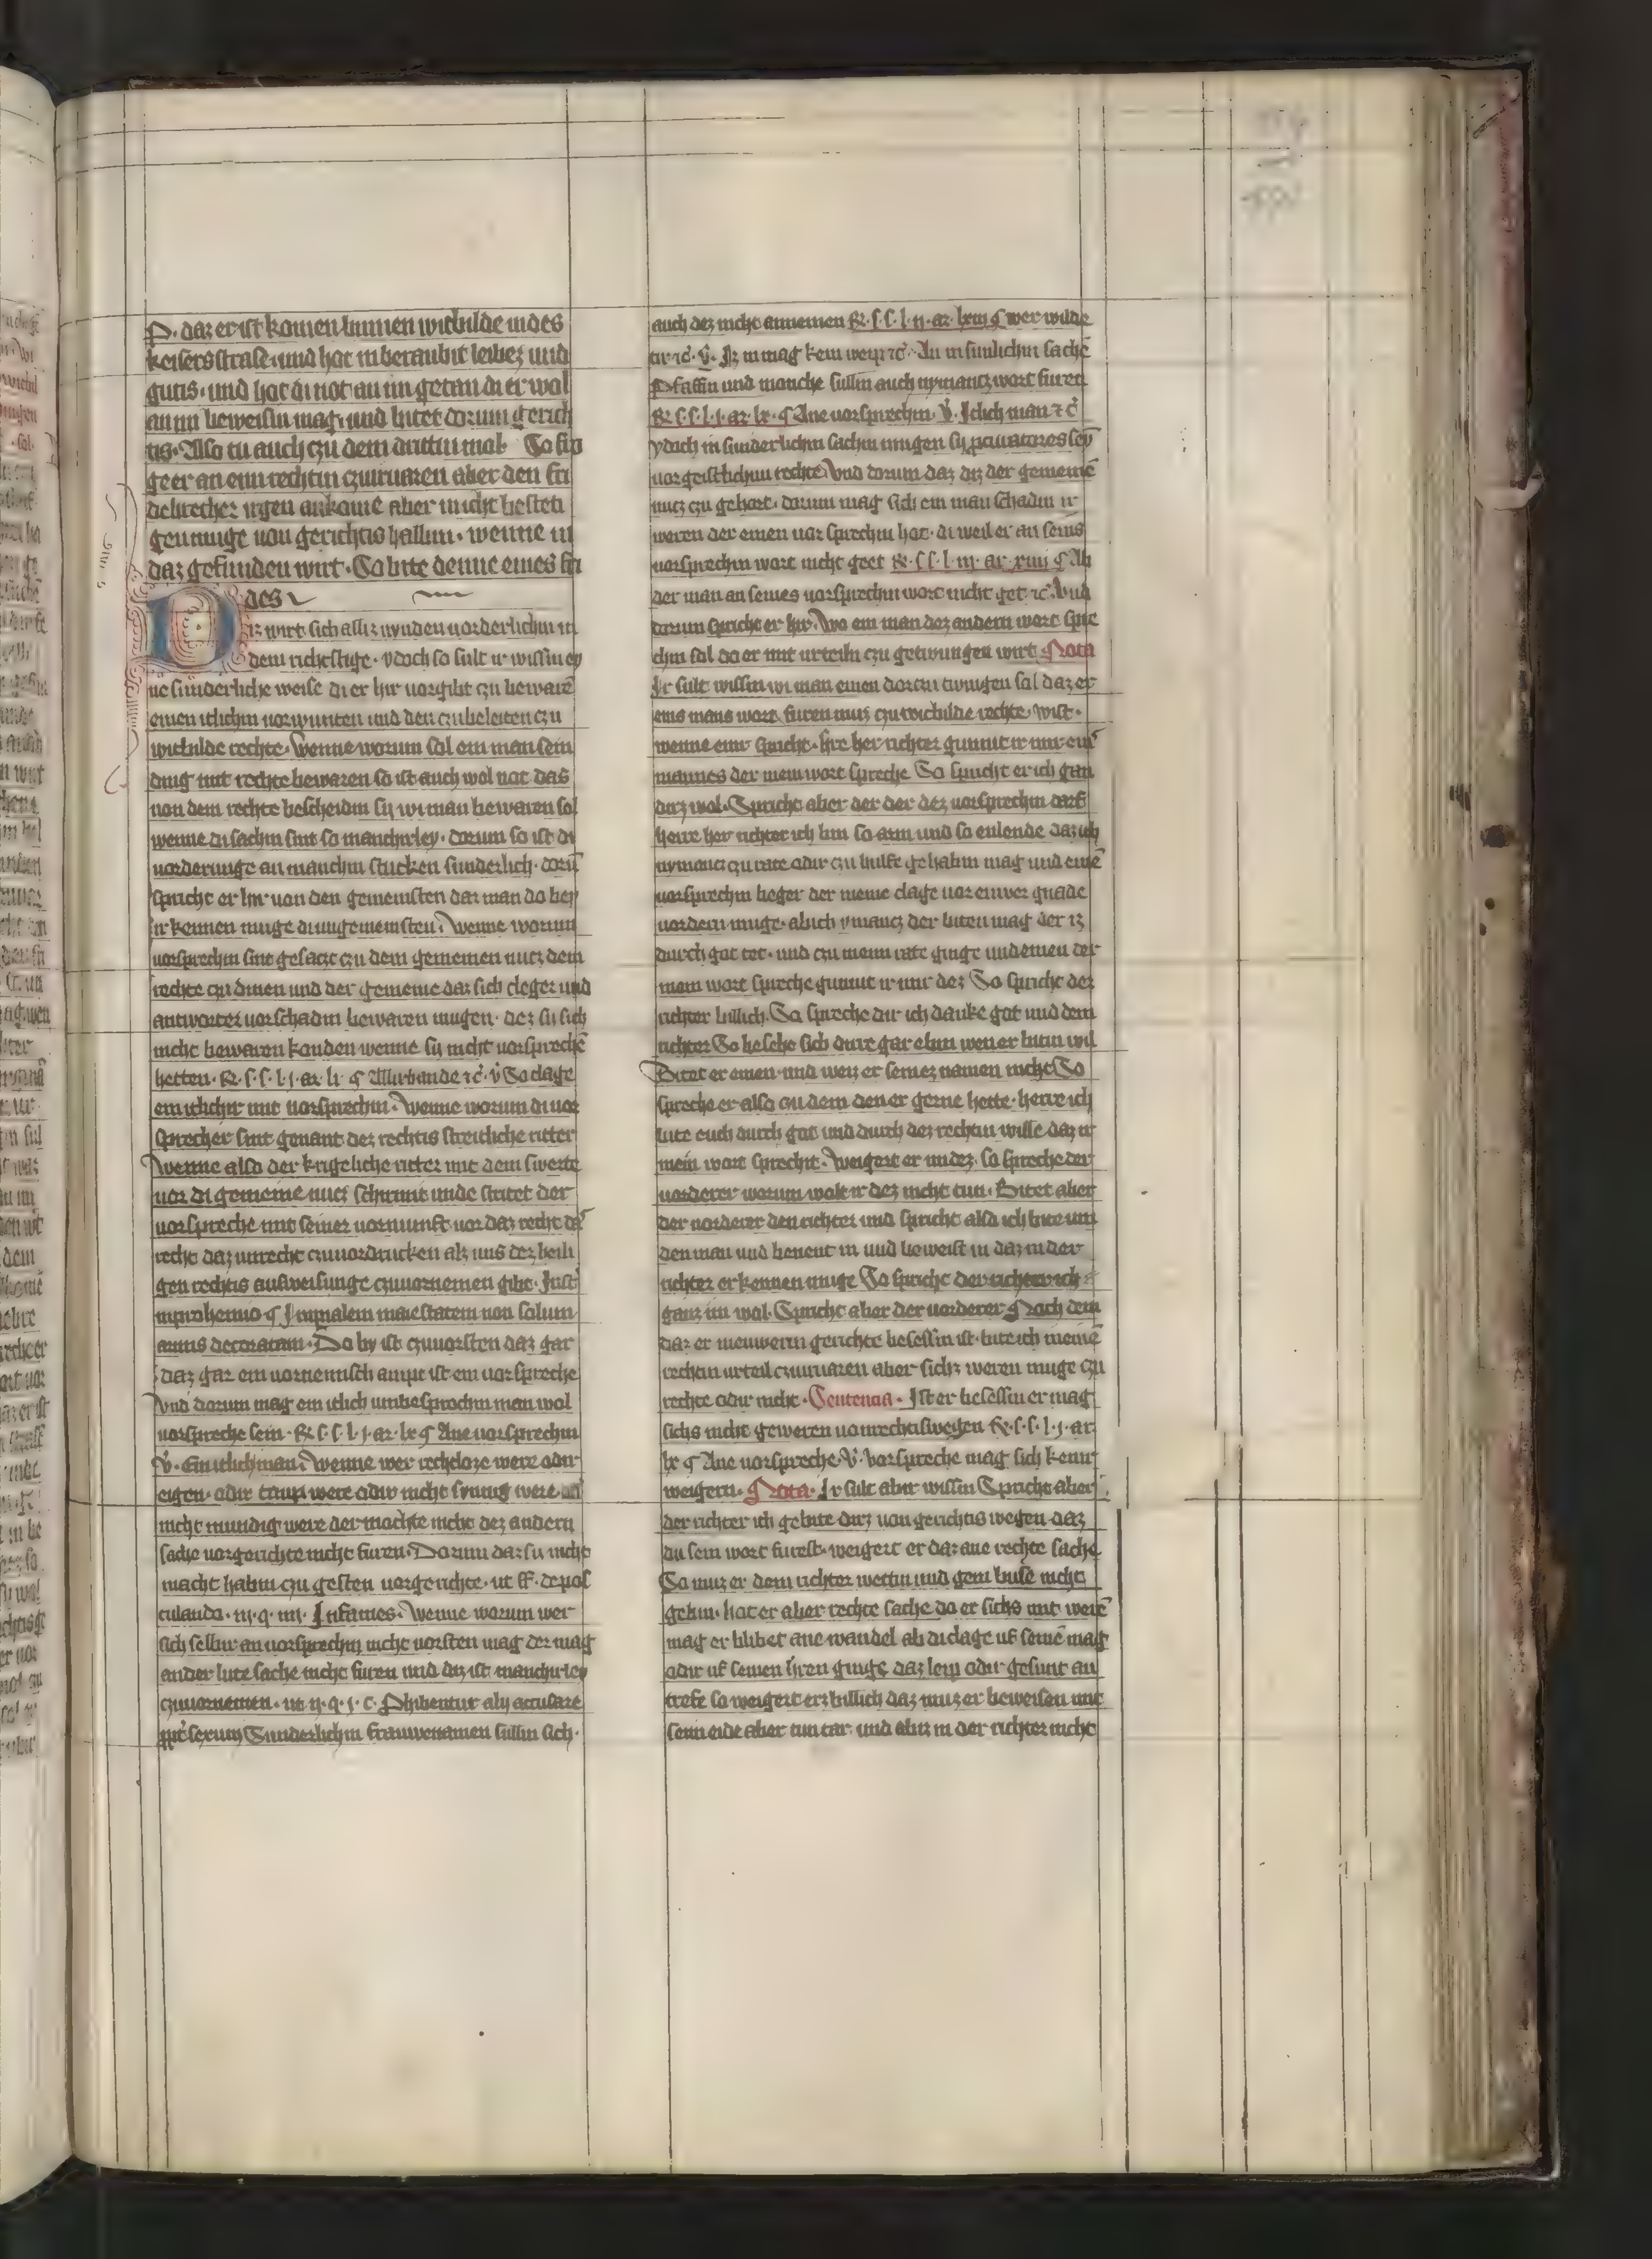 P. daz er ist komen binnen wicbilde in des
keisers strase. und hat in beraubit leibez und
gutis. und hat di not an im getan di er wol
an im beweisin mag. und bitet dorum gerich
tis. Also tu auch czu dem drittin mol. So fro
ge er an eim rechtin czu
brecher irgen ankome aber in icht besteti
gen muge von gerichtis halbin. wenne im
daz gefunden wirt. So bite denne eines fri
des
Diz wirt sich alliz nynden vorderlichin in
dem richtstige. ydoch so sult ir wissin ey
ne sunderliche weise di er hir vorgibt czu beware
einen itlichin vorwunten und den czu beleiten czu
wicbilde rechte. Wenne worum sol ein man sein
ding mit rechte bewaren so ist auch wol not das
von dem rechte bescheidin sy wi man bewaren sol
wenne di sachin sint so manchirley. dorum so ist di
vorderunge an manchin stucken sunderlich. doru
spricht er hir von den gemeinsten daz man do bey
irkennen muge di ungemeinsten. Wenne worum
vorsprechin sint gesaczt czu dem gemeinen nucz dem
rechte czu dinen und der gemeine daz sich cleger und
antworter vor schadin bewaren mugen. dez sy sich
nicht bewaren konden wenne sy nicht vorspreche
hetten. R. s. s. l. j. ar. lx. ¶ Allirhande ꝛc. v. So clage
ein itlichir mit vorsprechin. Wenne worum di vor
sprecher sint genant dez rechtis streitliche ritter
Wenne also der krigeliche ritter mit dem swerte
vor di gemeine nucz schirmit unde stritet der
vorspreche mit seiner vornumft vor daz recht
recht daz unrecht czu vordrucken alz uns dez heili
gen rechtis ausweisunge czu vornemen gibt. Inst
in prohemio ¶ Imperialem maiestatem non solum
armis decoratam. Do by ist czu vorsten daz gar
daz gar ein vornemisch ampt ist ein vorspreche
Und dorum mag ein itlich umbesprochin man wol
vorspreche sein. R. s. s. l. j. ar. lx ¶ Ane vorsprechin
v. Ein itlich man. Wenne wer rechtloze were odir
eigen. odir taup were odir nicht synnig were
nicht mundig were der mochte nicht dez andern
sache vor gerichte nicht furen. Dorum daz sy nicht
macht habin czu gesten vor gerichte. ut ff. de pos
tulando. iij. q. iiij. Infames. Wenne worum wer
sich selbir an vorsprechin nicht vorsten mag der mag
ander lute sache nicht furen und diz ist manchirley
czu vornemen. ut ij. q. j. c. Prohibentur alij accusare
propter sexum Sunderlichin frauwenamen sullin sich.
auch dez nicht annemen R. s. s. l. ij. ar. lxiij ¶ wer wilde
tir ꝛc. v. Iz inmag kein weip ꝛc. An in sunlichin sache
Pfaffin und monche sullin auch nymancz wort furen
R. s. s. l. j. ar. lx. ¶ Ane vorsprechin. v. Iclich man ꝛc
ydoch in sunderlichin sachin mugen sy procuratores sey
vor geistlichim rechte. Und dorum daz diz der gemeine
nucz czu gehort. dorum mag sich ein man schadin ir
weren der einen vorsprechin hot. di weil er an seins
vorsprechin wort nicht geet R. s. s. l. iij. ar. xiiij ¶ Ab
der man an seines vorsprechin wort nicht get. ꝛc. Und
dorum spricht er hir. Wo ein man dez andern wort spre
chin sol do er mit urteiln czu getwungen wirt Nota
Ir sult wissin wi man einen dorczu twingen sal daz er
eins mans wort furen muz czu wicbilde rechte. wist.
wenne eyner spricht. hre her richter gunnit ir mir eins
mannes der mein wort spreche So spricht er ich gan
dirz wol. Spricht aber der der dez vorsprechin darf
herre her richter ich bin so arm und so eilende daz ich
nymancz czu rate odir czu hulfe gehabin mag und eine
vorsprechin beger der meine clage vor einver gnade
vordern muge. ab ich ymancz der biten mag der iz
durch got tet. und czu meim rate ginge und einen der
mein wort spreche gunnit ir mir dez So spricht der
richter billich. So spreche dir ich danke got und dem
richter So besehe sich dirre gar eben wen er bitin wil
Bitet er einen. und weiz er seinez namen nicht So
spreche er also czu dem den er gerne hette. herre ich
bite euch durch got und durch dez rechtin wille daz ir
mein wort sprecht. Weigert er in dez. so spreche der
vorderer worum wolt ir dez nicht tun. Bitet aber
der vorderer den richter und spricht also ich bite um
den man und benent in und beweist in daz in der
richter erkennen muge So spricht der richter ich
ganz im wol. Spricht aber der vorderer Noch dem
daz er in euwerm gerichte besessin ist. bite ich meine
rechtin urteil czu irvaren aber sichz weren muge czu
rechte odir nicht. Sentencia. Ist er besessin er mag
sichs nicht geweren von rechtiswegen R. s. s. l. j. ar
lx ¶ Ane vorspreche. v. Vorspreche mag sich keinr
weigern. Nota. Ir sult abir wissin Spricht aber
der richter ich gebite dirz von gerichtis wegen daz
du sein wort furest. weigert er daz ane rechte sache
So muz er dem richter wettin und gem buse nicht
gebin. hat er aber rechte sache do er sichs mit were
mag er blibet ane wandel ab di clage uf seine mag
odir uf seinen hren ginge daz leip odir gesunt an
trefe so weigert erz billich daz muz er beweisen mit
seim eide aber tun tar. und abir in der richter nicht